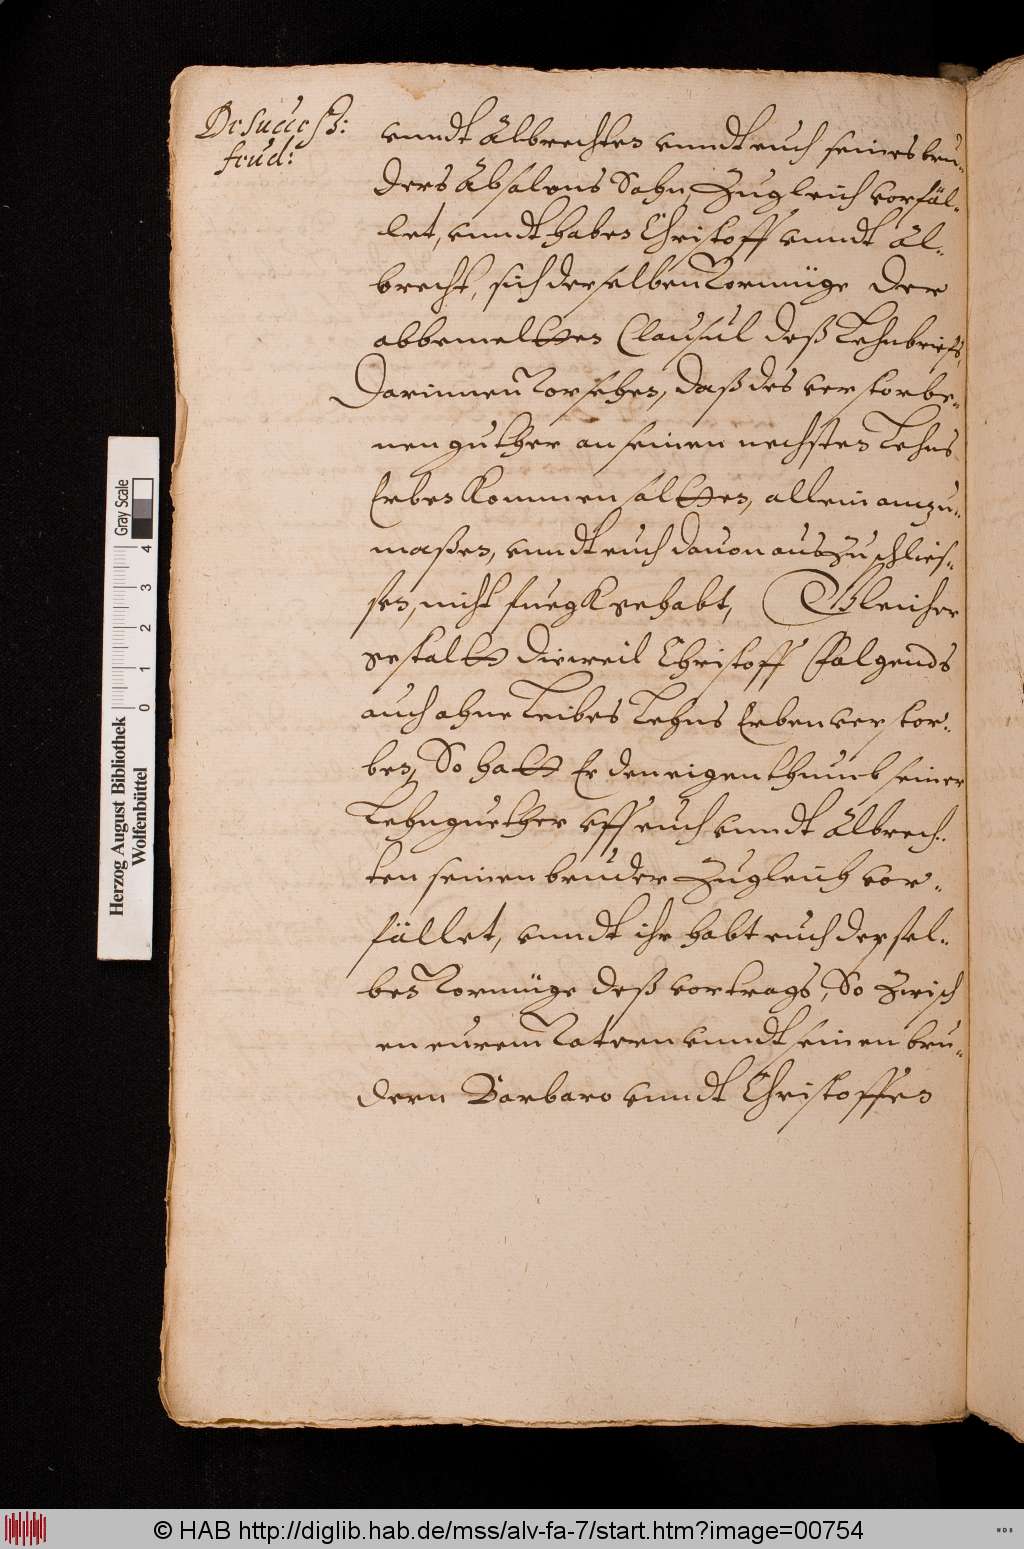 De Success:
feud:
vnndt Albrechten vnndt euch seines bru-
ders Absalons Sohn, Zugleich vorfäl-
let, vnndt haben Christoff vnndt Al-
brecht, sich derselben Vormüge der
abbemeltten Clausul deß Lehnbriefs,
Darinnen Vorsehen, daß des verstorbe-
nen guther an seinen nechsten Lehns
Erben kommen soltten, allein anzu-
maßen, vnndt euch dauon auszuschlies-
sen, nicht fuegk gehabt, Gleicher
gestaltt dieweil Christoff Folgends
auch ohne Leibes Lehns Erben verstor-
ben, So hatt Er den eigenthumb seiner
Lehnguether vff euch vnndt Albrech-
ten seinen bruder Zugleich vor-
fället, vnndt ihr habt euch dersel-
ben Vormüge deß vortrags, So Zwisch
en eurem Vatern vnndt seinen bru-
dern Barbaro vnndt Christoffen
Herzog August Bibliothek
Wolfenbüttel
Gray Scale
0 1 2 3 4
© HAB http://diglib.hab.de/mss/alv-fa-7/start.htm?image=00754